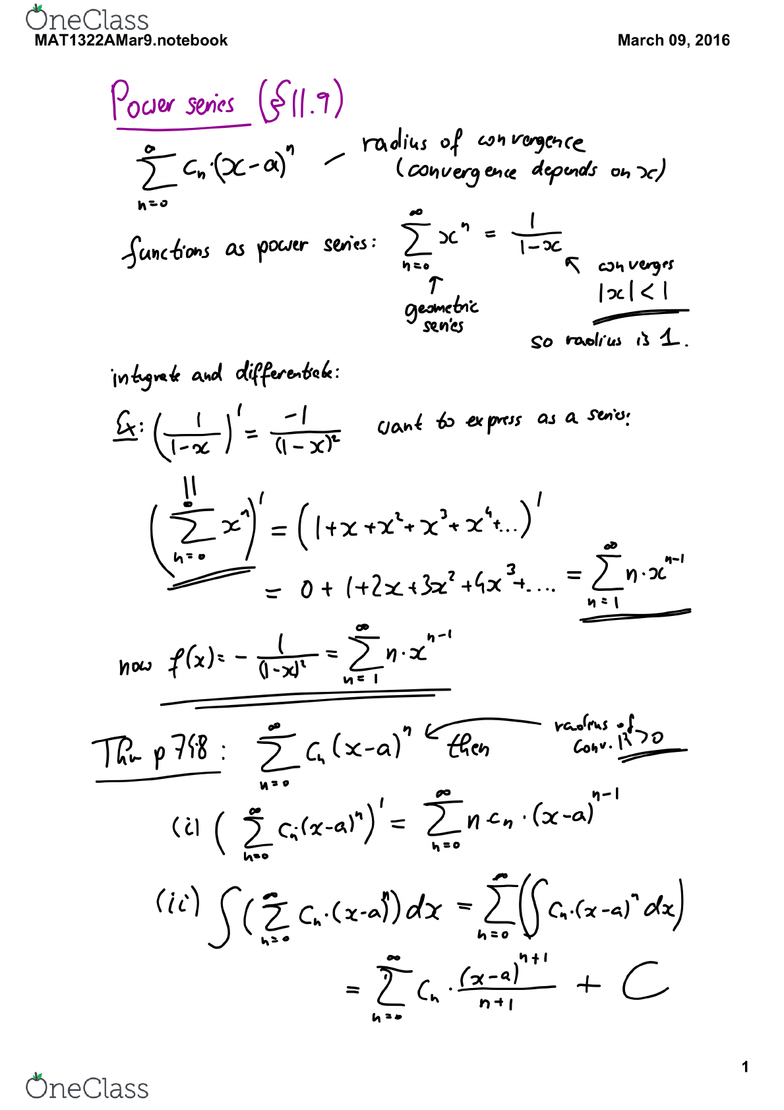 OneClass
MAT1322AMar9.notebook March 09, 2016
Power series (§11.9)
∑_{n=0}^{∞} cₙ·(x-a)ⁿ – radius of convergence
(convergence depends on x)
functions as power series: ∑_{n=0}^{∞} xⁿ = 1/(1-x)
↑ geometric series
↖ converges
|x| < 1
so radius is 1.
integrate and differentiate:
Ex: (1/(1-x))' = -1/(1-x)² want to express as a series:
||
(∑_{n=0}^{∞} xⁿ)' = (1+x+x²+x³+x⁴+...)'
= 0+1+2x+3x²+4x³+.... = ∑_{n=1}^{∞} n·x^{n-1}
now f(x) = - 1/(1-x)² = ∑_{n=1}^{∞} n·x^{n-1}
Thm p 748: ∑_{n=0}^{∞} cₙ(x-a)ⁿ ← radius of conv. R>0
then
(i) (∑_{n=0}^{∞} cₙ(x-a)ⁿ)' = ∑_{n=0}^{∞} n cₙ·(x-a)^{n-1}
(ii) ∫(∑_{n=0}^{∞} cₙ·(x-a)ⁿ) dx = ∑_{n=0}^{∞} (∫cₙ·(x-a)ⁿ dx)
= ∑_{n=0}^{∞} cₙ · (x-a)^{n+1}/(n+1) + C
1
OneClass